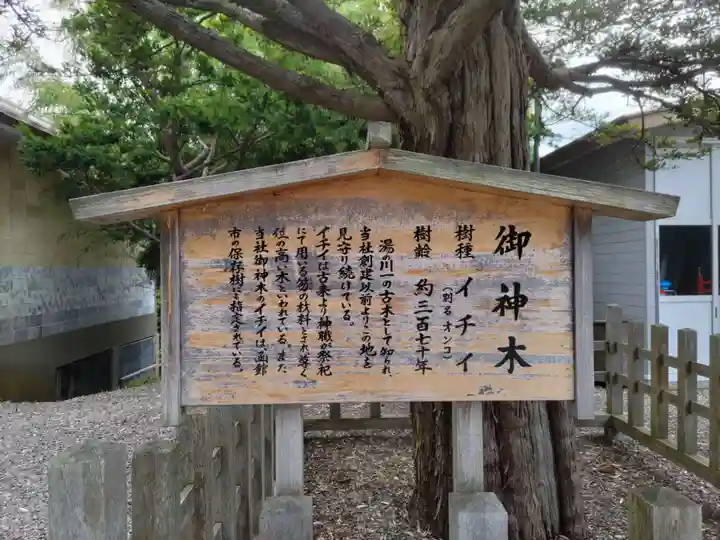 御神木
樹種　イチイ
（別名　オンコ）
樹齢　約三百七十年
湯の川一の古木として知られ、
当社創建以前よりこの地を
見守り続けている。
イチイは古来より神職が祭祀
にて用いる笏の材料とされ尊く
位の高い木といわれている。また、
当社御神木のイチイは函館
市の保存樹木と指定されている。